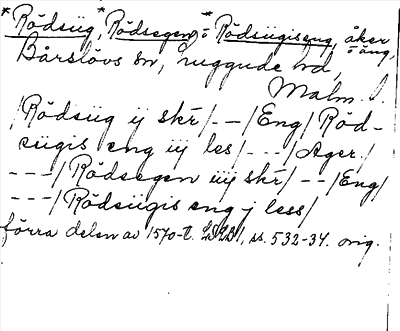 *Rödsüg, *Rödsegen = *Rödsügiseng, åker
o äng,
Bårslövs sn, Luggude hd,
Malm. l.
/Rödsüg ij skr̄/ -- /Eng/ Röd-
sügis eng iij les/ --- /Ager./
--- /Rödsegen iiij skr̄/ -- /Eng/
--- /Rödsügis eng j less/
förra delen av 1570-t. LDB1, ss. 532-34. orig.